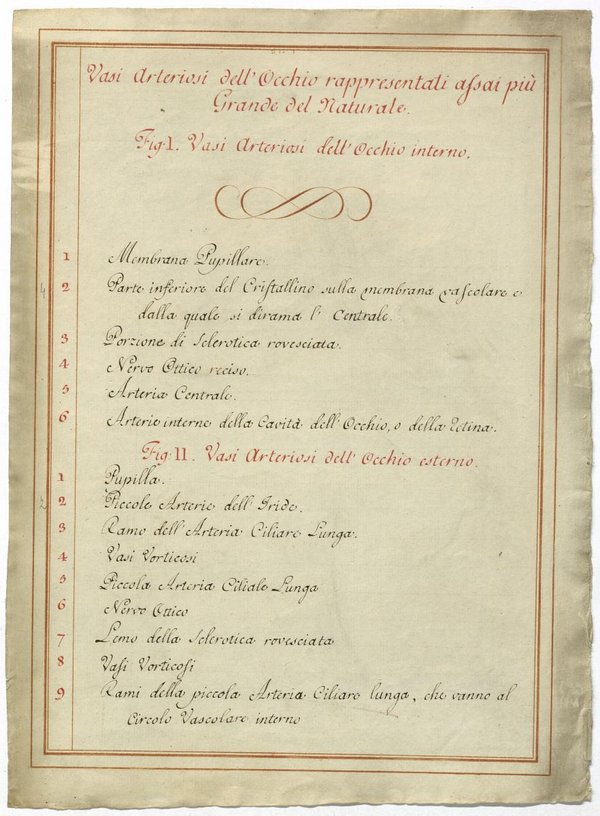 Vasi Arteriosi dell'Occhio rappresentati assai più
Grande del Naturale.
Fig: I. Vasi Arteriosi dell'Occhio interno.
1 Membrana Pupillare.
2 Parte inferiore del Cristallino sulla membrana vascolare e
dalla quale si dirama l' Centrale.
3 Porzione di Sclerotica rovesciata.
4 Nervo Ottico reciso.
5 Arteria Centrale.
6 Arterie interne della Cavità dell'Occhio, o della Retina.
Fig: II. Vasi Arteriosi dell'Occhio esterno.
1 Pupilla.
2 Piccole Arterie dell'Iride.
3 Ramo dell'Arteria Ciliare Lunga.
4 Vasi Vorticosi
5 Piccola Arteria Ciliale Lunga
6 Nervo Ottico
7 Lemo della Sclerotica rovesciata
8 Vasi Vorticosi
9 Rami della piccola Arteria Ciliare lunga, che vanno al
Circolo Vascolare interno